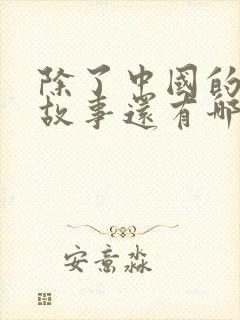 除了中國的
故事還有哪
安意淼